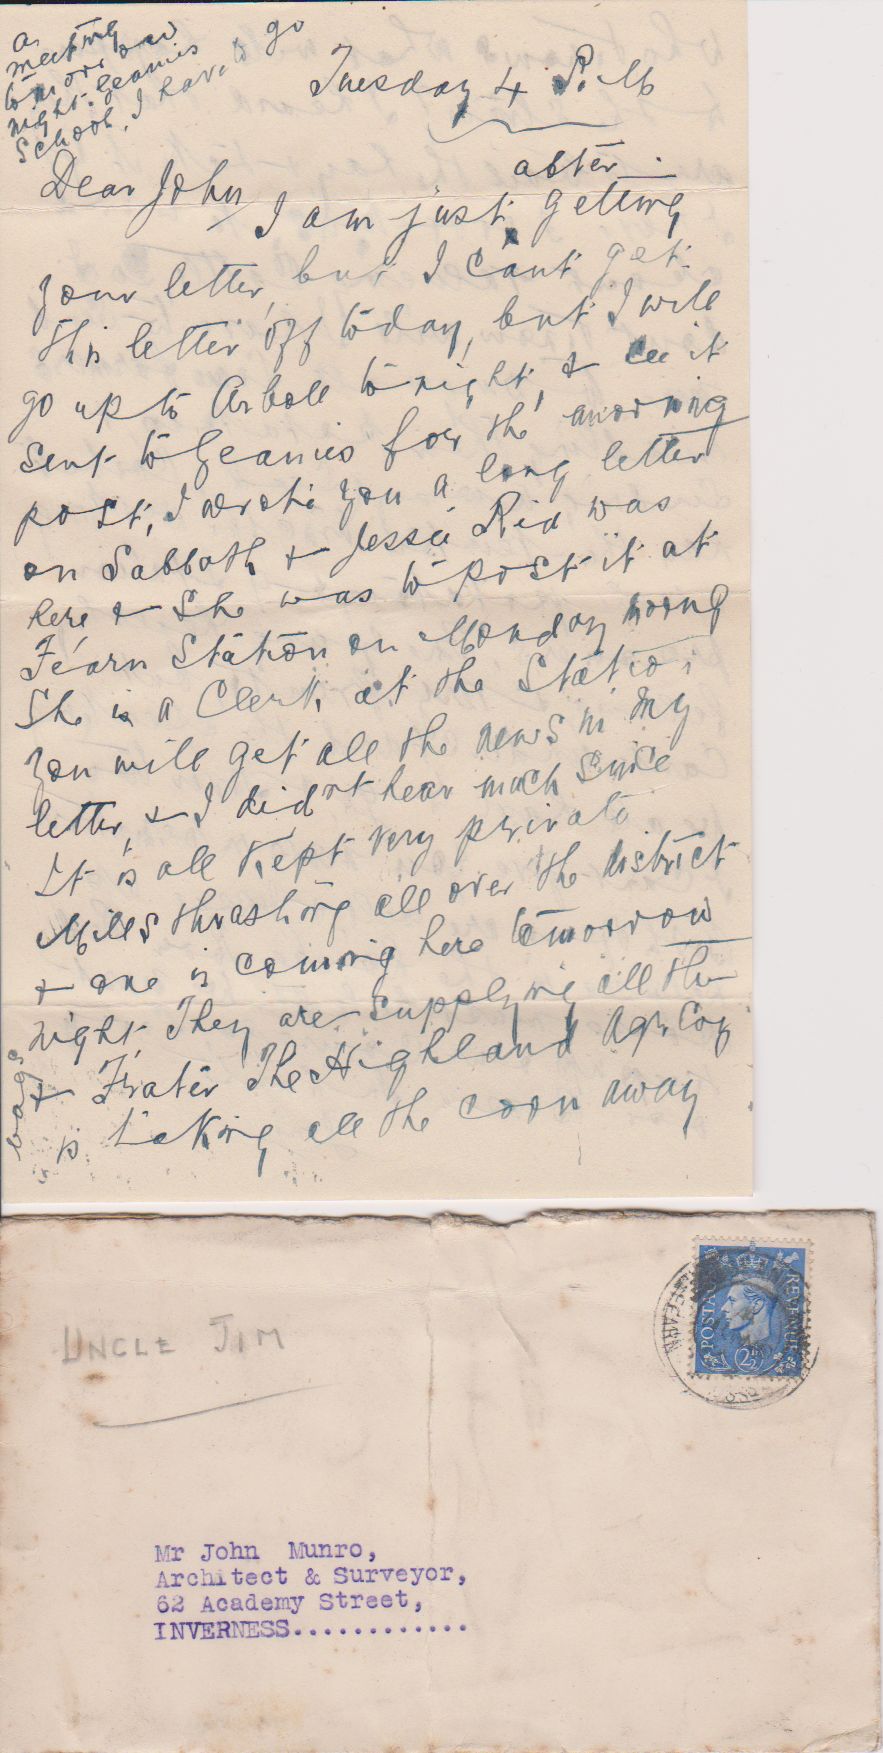 a
meeting
tomorrow
night. Geanies
School, I have to go
Tuesday 4 P.M
Dear John
after
I am just getting
your letter, but I can't get
this letter off today, but I will
go up to Arboll to night, & see it
sent to Geanies for the morning
post, I wrote you a long letter
on Sabbath & Jessie Reid was
here & she was to post it at
Fearn Station on Monday morng
She is a Clerk at the Station
you will get all the news in my
letter, & I didn't hear much since
It is all kept very private
Mills thrashing all over the district
& one is coming here tomorrow
night They are supplying all the
bags
& Frater The Highland Agr. Coy
is taking all the corn away
UNCLE JIM
POSTAGE
REVENUE
2½D
FEARN
Mr John Munro,
Architect & Surveyor,
62 Academy Street,
INVERNESS............